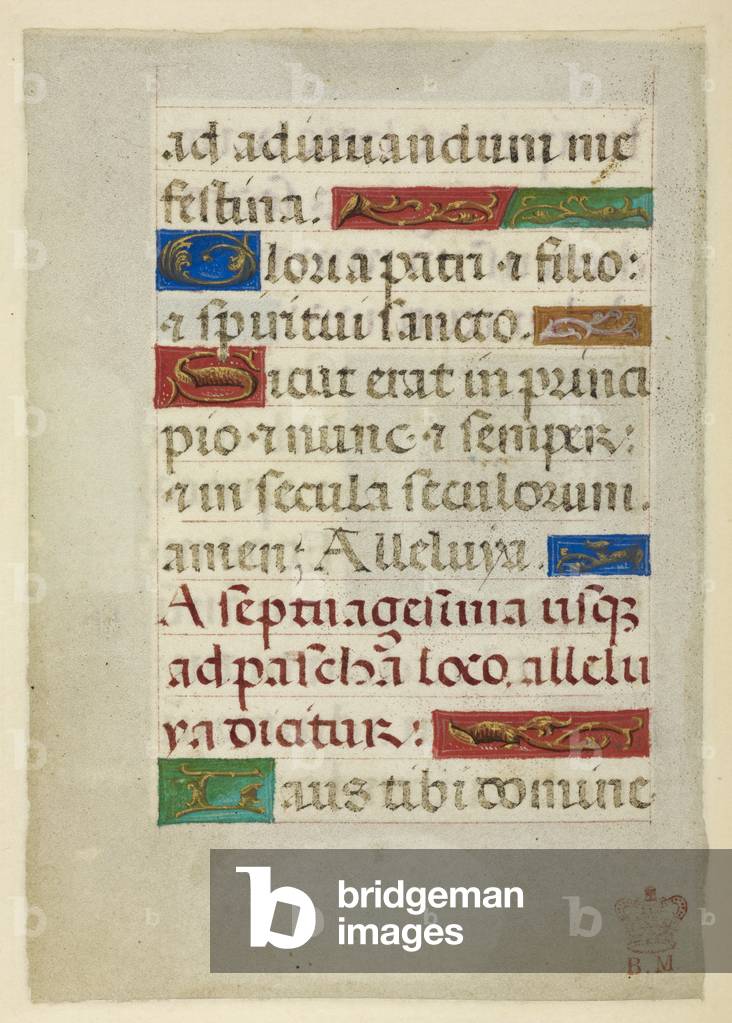 ad adiuuandum me
festina.
Gloria patri ⁊ filio:
⁊ spiritui sancto.
Sicut erat in princi
pio ⁊ nunc ⁊ semper:
⁊ in secula seculorum.
amen; Alleluya.
A septuagesima usqꝫ
ad paschā loco allelu
ya dicitur:
Laus tibi domine
b bridgeman
images
B.M